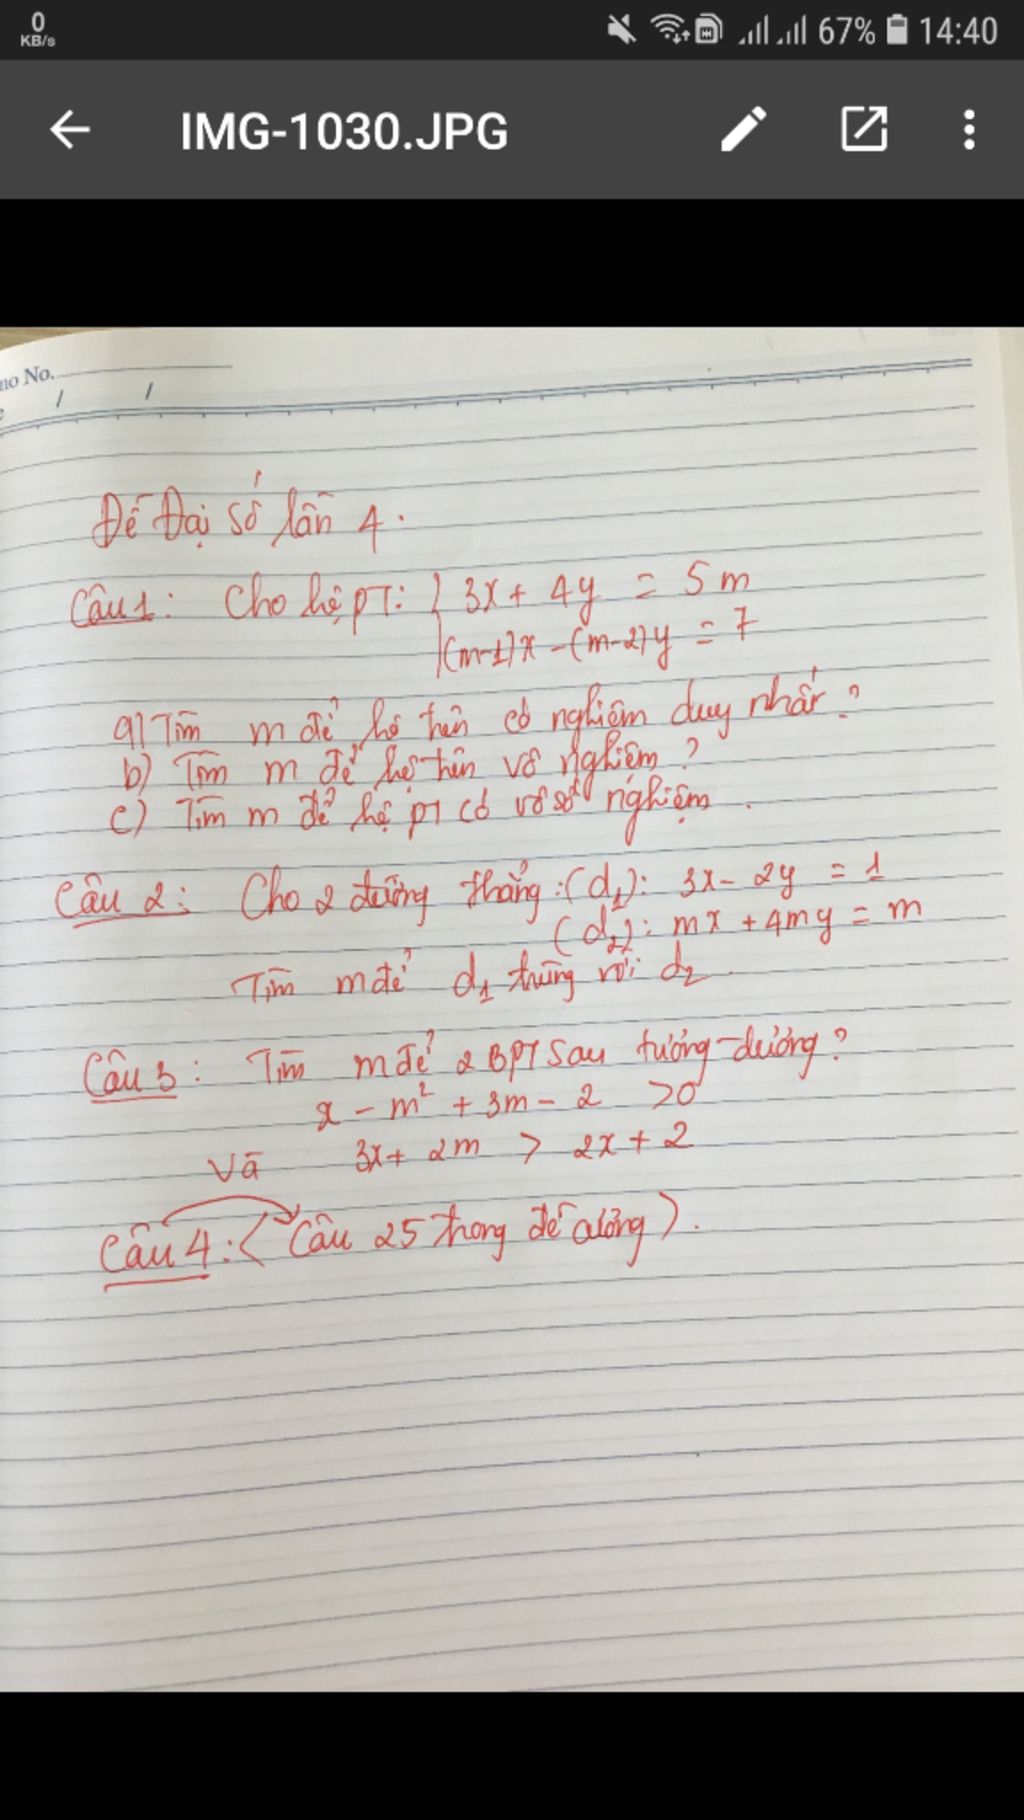 0
KB/s
67%
14:40
IMG-1030.JPG
no No.
Đề Đại số lần 4.
Câu 1: Cho hệ PT: { 3x + 4y = 5m
(m-1)x - (m-2)y = 7
a) Tìm m để hệ trên có nghiệm duy nhất?
b) Tìm m để hệ trên vô nghiệm?
c) Tìm m để hệ pt có vô số nghiệm.
Câu 2: Cho 2 đường thẳng: (d₁): 3x - 2y = 1
(d₂): mx + 4my = m
Tìm m để d₁ trùng với d₂.
Câu 3: Tìm m để 2 BPT sau tương-đương?
x - m² + 3m - 2 > 0
Và 3x + 2m > 2x + 2
Câu 4: < Câu 25 trong đề cương).